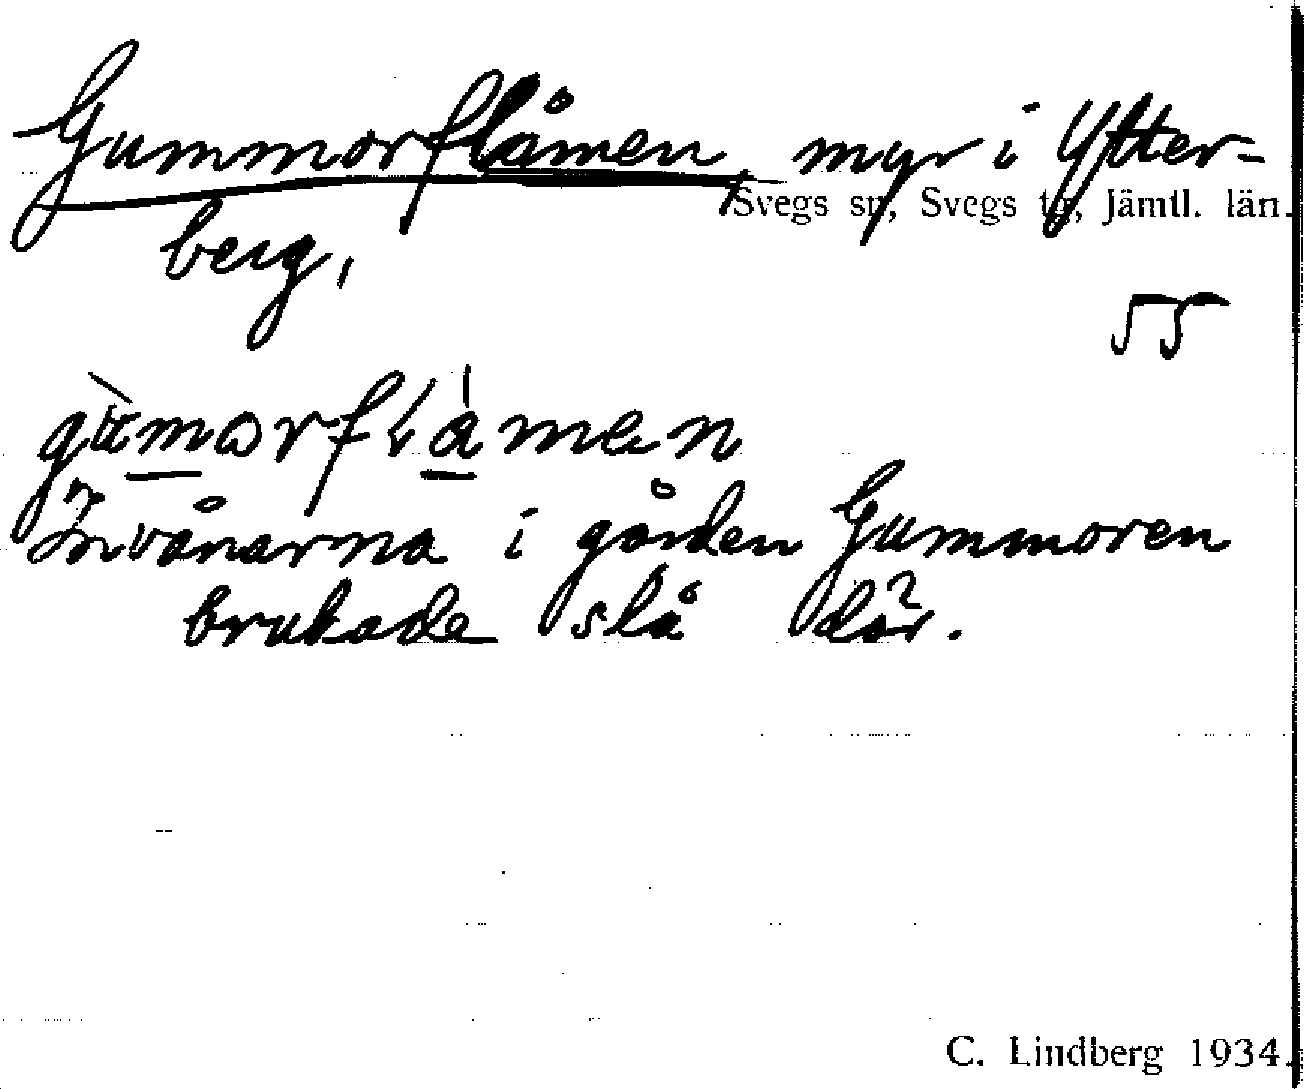 Gummorflåmen, myr i Ytter-
Svegs sn, Svegs tg, Jämtl. län.
berg,
55
Invånarna i gården Gummoren
brukade slå där.
C. Lindberg 1934.